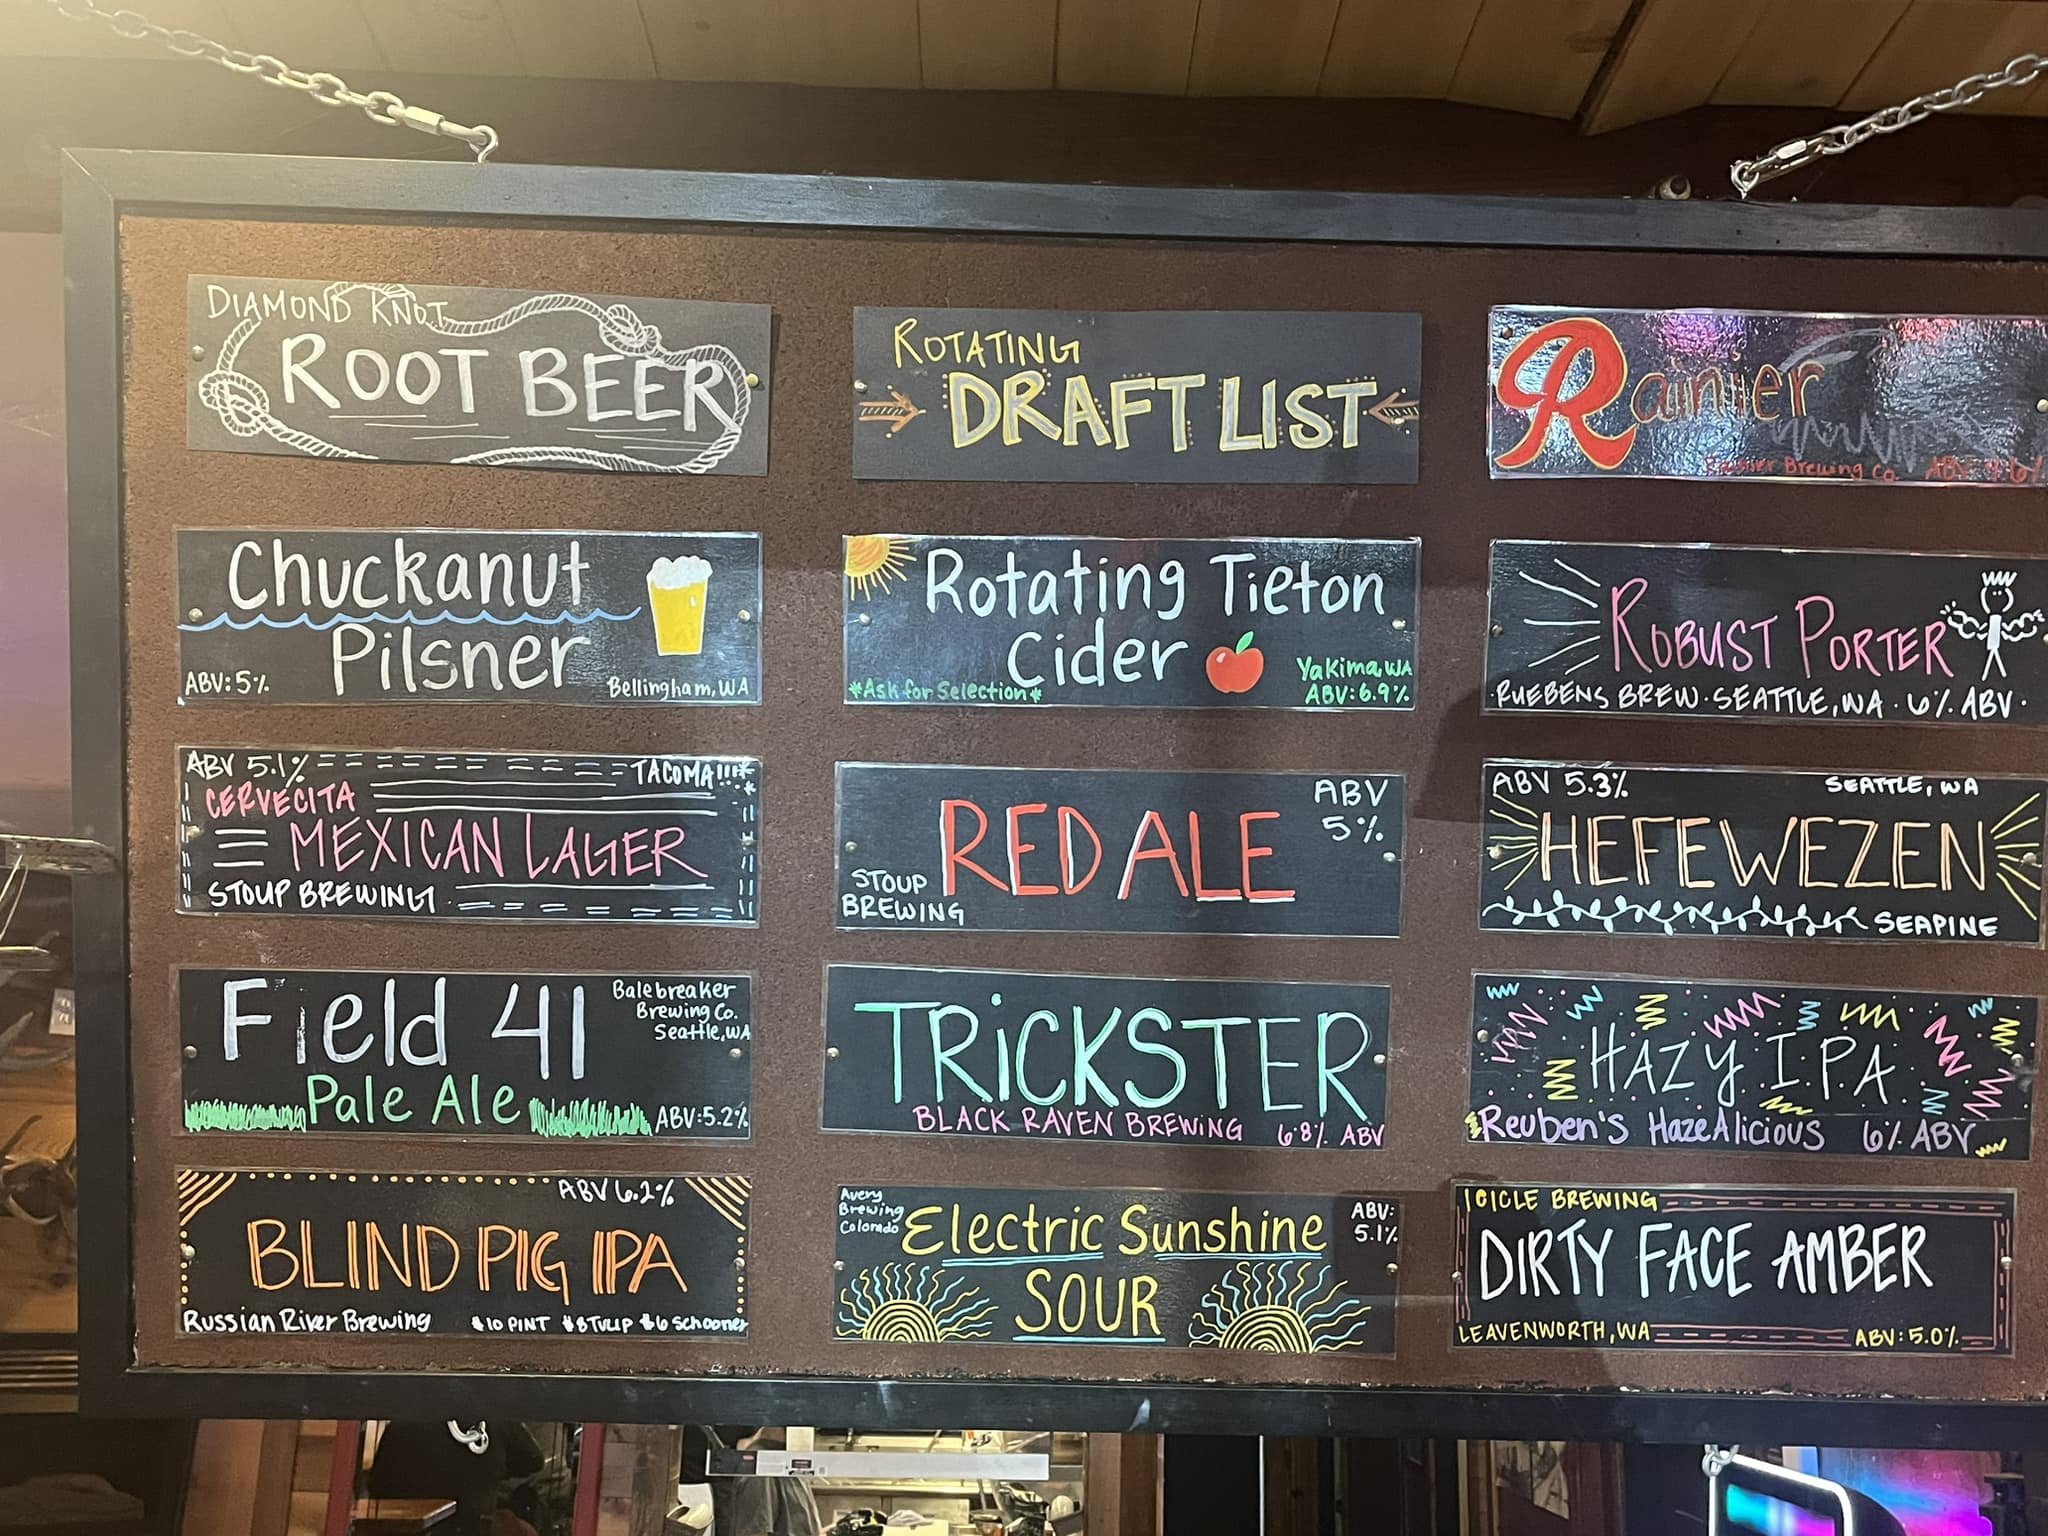 DIAMOND KNOT
ROOT BEER
ROTATING
DRAFT LIST
Rainier
Rainier Brewing Co. ABV 4.6%
Chuckanut
Pilsner
ABV: 5%
Bellingham, WA
Rotating Tieton
Cider
*Ask for Selection*
Yakima, WA
ABV: 6.9%
ROBUST PORTER
RUEBENS BREW · SEATTLE, WA · 6% ABV ·
ABV 5.1%
TACOMA!!!
CERVECITA
MEXICAN LAGER
STOUP BREWING
RED ALE
ABV
5%
STOUP
BREWING
ABV 5.3%
SEATTLE, WA
HEFEWEZEN
SEAPINE
Field 41
Balebreaker
Brewing Co.
Seattle, WA
Pale Ale
ABV: 5.2%
TRiCKSTER
BLACK RAVEN BREWING 6.8% ABV
HAZY I.P.A
Reuben's HazeAlicious 6% ABV
ABV 6.2%
BLIND PIG IPA
Russian River Brewing $10 PINT $8 TULIP $6 Schooner
Avery
Brewing
Colorado
Electric Sunshine
SOUR
ABV:
5.1%
ICICLE BREWING
DIRTY FACE AMBER
LEAVENWORTH, WA
ABV: 5.0%